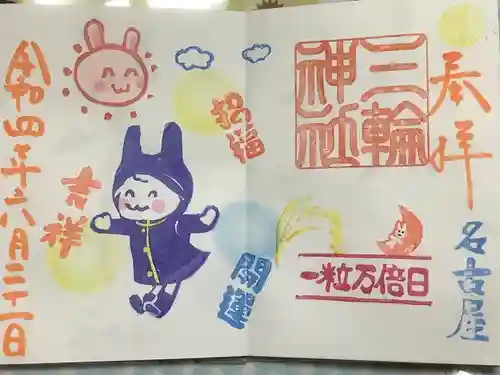 奉拝
三輪
神社
名古屋
一粒万倍日
招福
開運
吉祥
令和四年六月二十一日